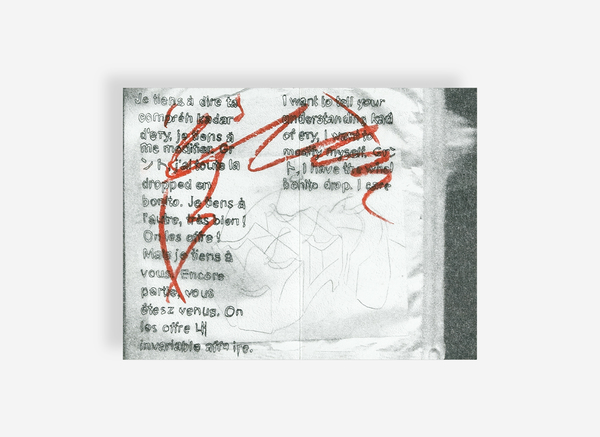 Je tiens à dire ta
compréh kadar
d'ery, je tiens à
me modifier. Gr
ント, j'ai toute la
dropped en
bonito. Je tiens à
l'autre, très bien !
On les offre !
Mais je tiens à
vous. Encore
partie, vous
étesz venus. On
les offre
invariable affa ire.
I want to tell your
understanding kad
of ery, I want to
modify myself. Gr
ト, I have the whol
bonito drop. I care